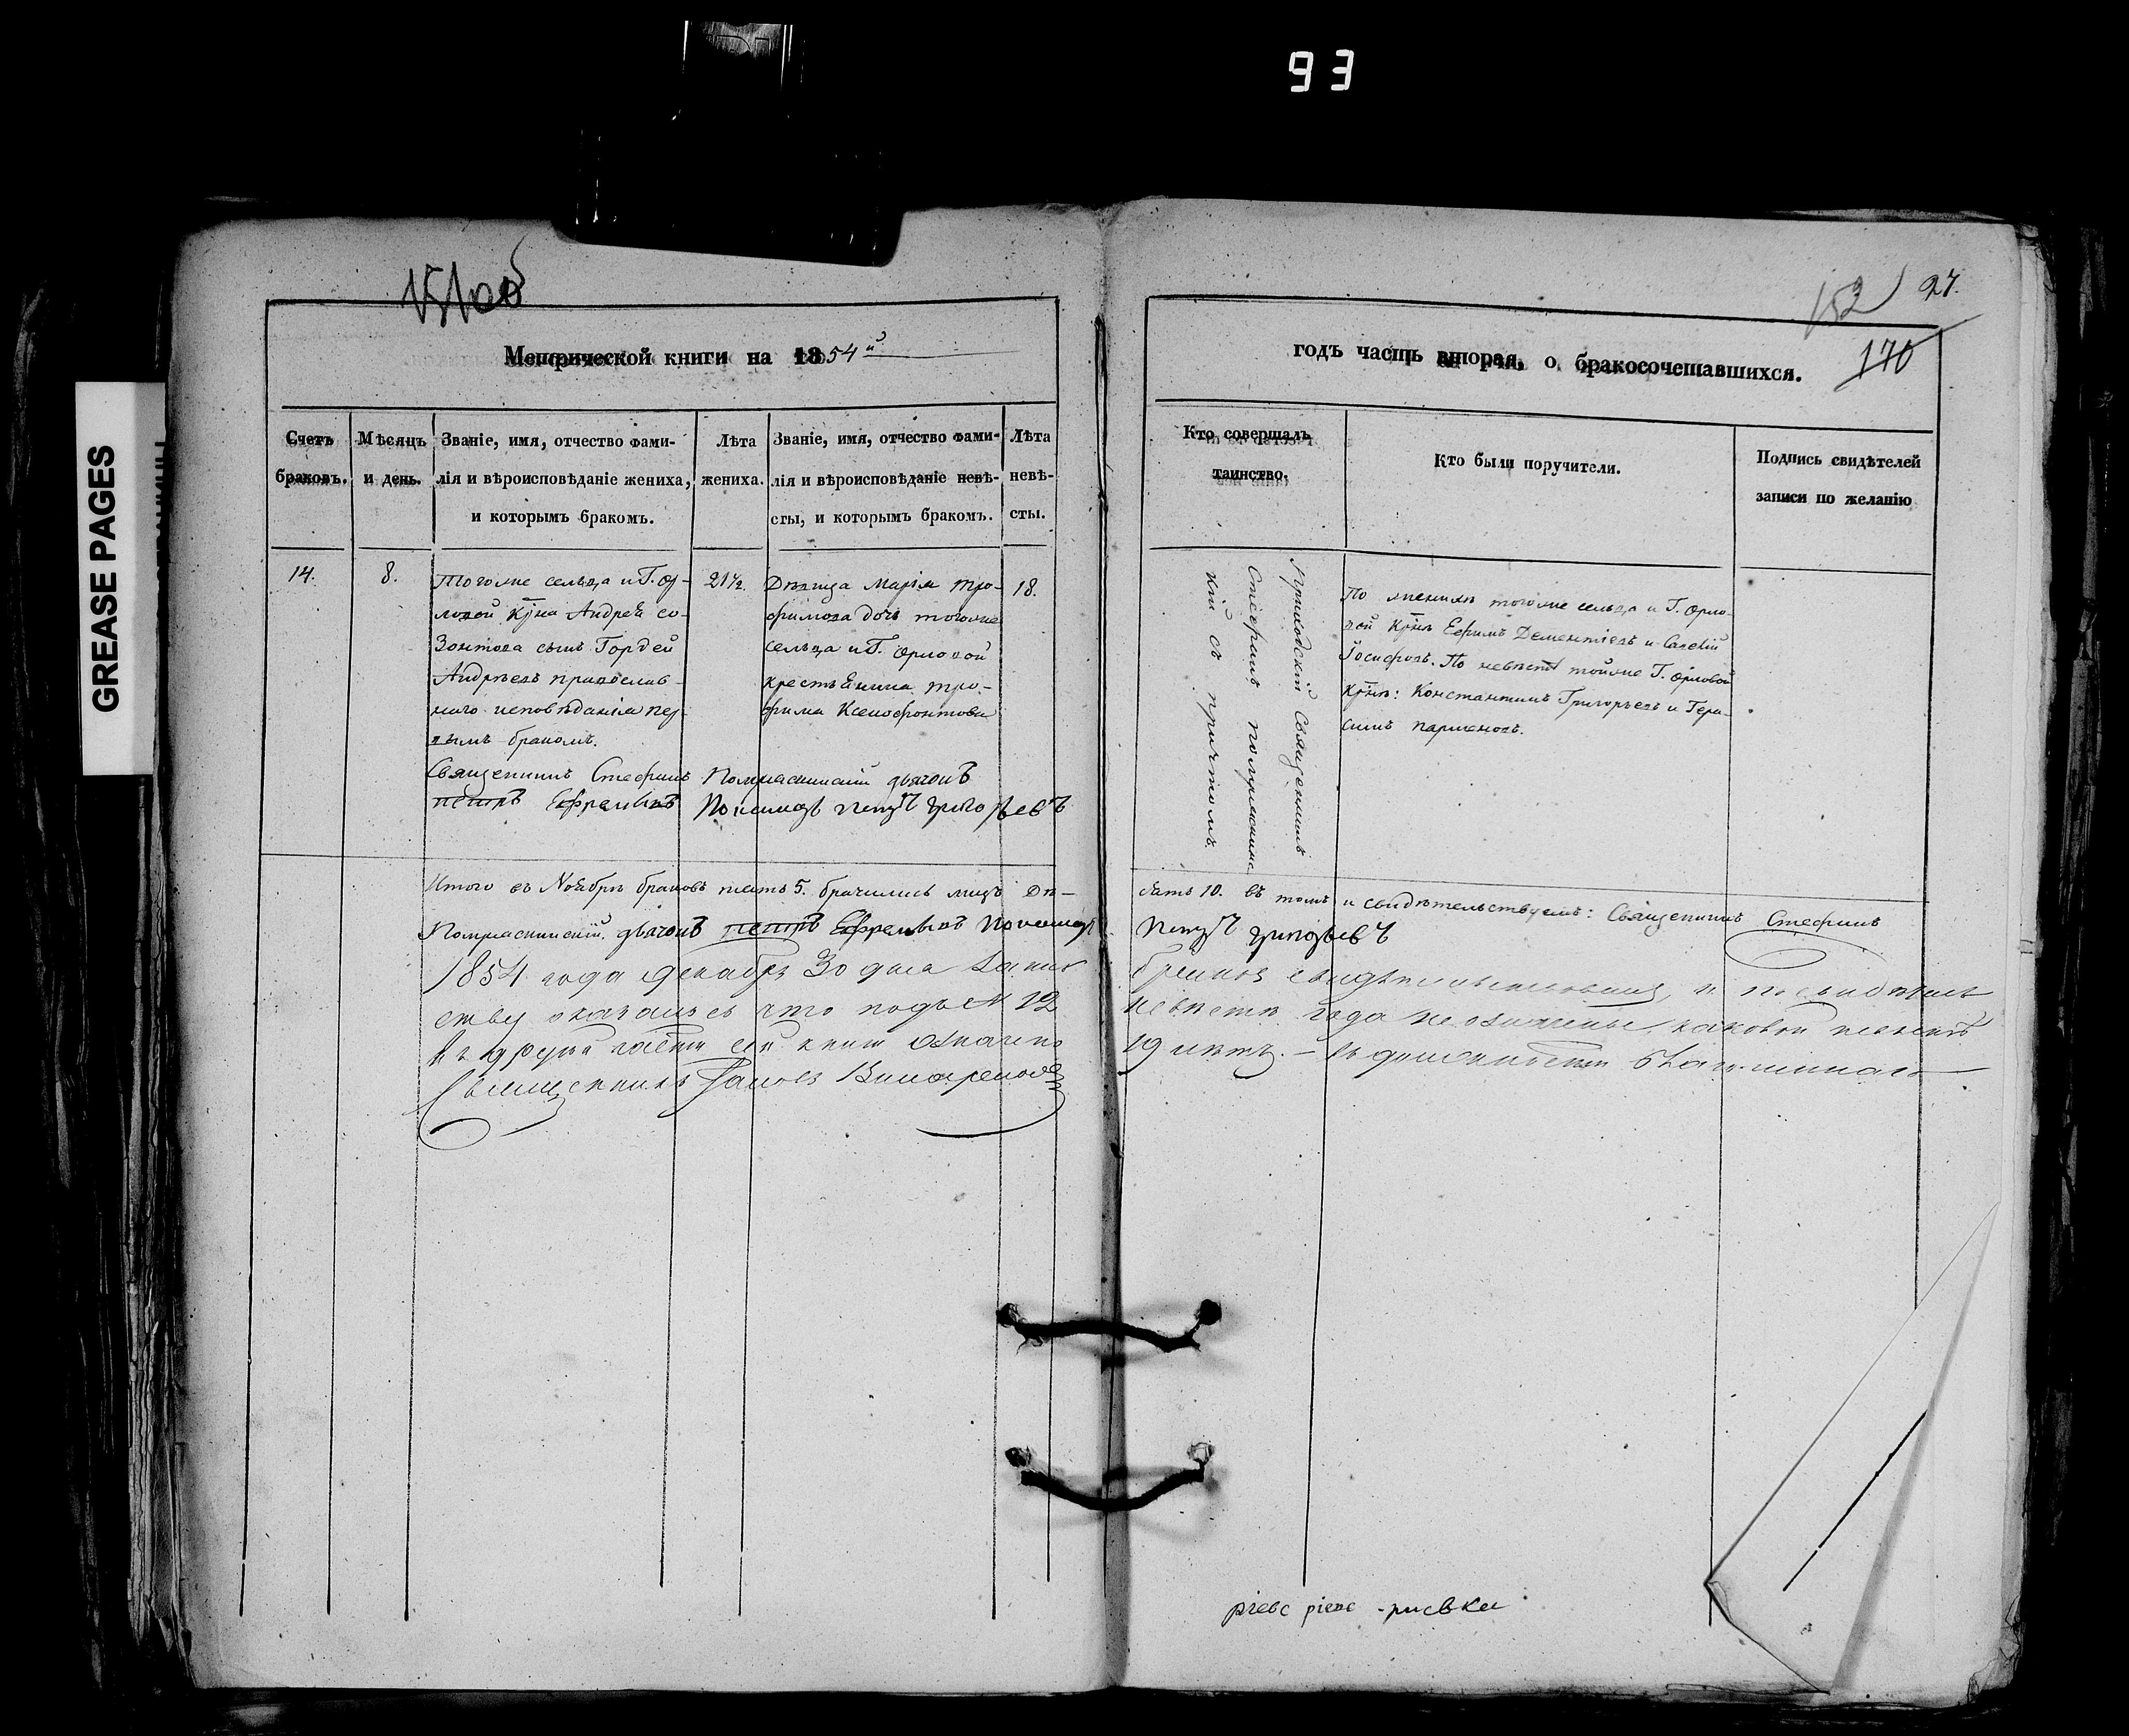 93
GREASE PAGES
27.
152
170
Метрической книги на 1854й
годъ часть вторая, о бракосочетавшихся.
Счетъ браковъ.
Мѣсяцъ и день.
Званіе, имя, отчество фами-
лія и вѣроисповѣданіе жениха,
и которымъ бракомъ.
Лѣта
жениха.
Званіе, имя, отчество фами-
лія и вѣроисповѣданіе невѣ-
сты, и которымъ бракомъ.
Лѣта
невѣ-
сты.
Кто совершалъ
таинство.
Кто были поручители.
Подпись свидѣтелей
записи по желанію
14.
8.
Тогоже сельца и Г. Ор-
ловой Кр̃на Андрея Со-
зонтова сынъ Гордей
Андреевъ православ-
наго исповѣданія пер-
вымъ бракомъ.
21½.
Дѣвица Марія Тро-
фимова дочь тогоже
сельца и Г. Орловой
крестьянина Тро-
фима Ксенофонтова
18.
Приходскій Священникъ
Стефанъ
кій съ причтомъ.
По женихѣ тогоже сельца и Г. Орло-
вой Кр̃не Ефимъ Дементіевъ и Савелій
Іосифовъ. По невѣстѣ тойже Г. Орловой
Кр̃не: Константинъ Григорьевъ и Гера-
симъ Парменовъ.
Священникъ Стефанъ дьячокъ
петръ Ефремовъ Пономарь Петръ Григорьевъ
Итого въ Ноябрѣ браковъ пять 5. брачились лицъ де-
сять 10. въ томъ и свидѣтельствуемъ: Священникъ Стефанъ
дьячокъ петръ Ефремовъ Пономарь
Петръ Григорьевъ
1854 года Декабря 30 дня
оказалось что подъ № 12
невѣстѣ года не означены, каковой невѣстѣ
въ другой части сей книги означено
19 лѣтъ. – въ должности благочиннаго
Священникъ